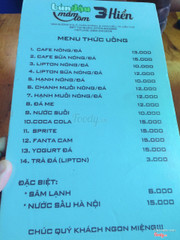 Bún đậu
mắm
tôm
3 Hiền
MENU THỨC UỐNG
1. CAFE NÓNG/ĐÁ 12.000
2. CAFE SỮA NÓNG/ĐÁ 15.000
3. LIPTON NÓNG/ĐÁ 10.000
4. LIPTON SỮA NÓNG/ĐÁ
5. HẠNH NÓNG/ĐÁ
6. CHANH MUỐI NÓNG/ĐÁ
7. HẠNH MUỐI NÓNG/ĐÁ
8. ĐÁ ME
9. NƯỚC SUỐI 10.000
10. COCA COLA 15.000
11. SPRITE 15.000
12. FANTA CAM 15.000
13. YOGURT ĐÁ 15.000
14. TRÀ ĐÁ (LIPTON) 3.000
ĐẶC BIỆT:
* SÂM LẠNH 8.000
* NƯỚC SÂU HÀ NỘI 15.000
CHÚC QUÝ KHÁCH NGON MIỆNG!!!